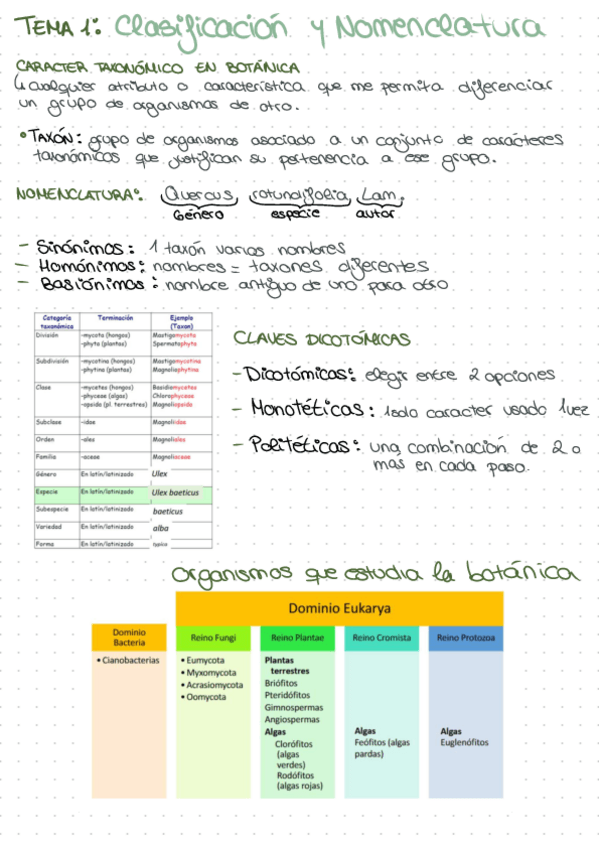 TEMA 1: Clasificación y Nomenclatura
CARACTER TAXONÓMICO EN BOTÁNICA
↳ cualquier atributo o característica que me permita diferenciar
un grupo de organismos de otro.
• TAXÓN: grupo de organismos asociado a un conjunto de carácteres
taxonómicos que justifican su pertenencia a ese grupo.
NOMENCLATURA: Quercus, rotundifolia, Lam.
Género especie autor
- Sinónimos: 1 taxón varios nombres
- Homónimos: nombres = taxones diferentes
- Basiónimos: nombre antiguo de uno para otro
Categoría taxonómica Terminación Ejemplo (Taxon)
División -mycota (hongos) Mastigomycota
-phyta (plantas) Spermatophyta
Subdivisión -mycotina (hongos) Mastigomycotina
-phytina (plantas) Magnoliophytina
Clase -mycetes (hongos) Basidiomycetes
-phyceae (algas) Chlorophyceae
-opsida (pl. terrestres) Magnoliopsida
Subclase -idae Magnoliidae
Orden -ales Magnoliales
Familia -aceae Magnoliaceae
Género En latín/latinizado Ulex
Especie En latín/latinizado Ulex baeticus
Subespecie En latín/latinizado baeticus
Variedad En latín/latinizado alba
Forma En latín/latinizado
CLAVES DICOTÓMICAS
- Dicotómicas: elegir entre 2 opciones
- Monotéticas: 1 solo caracter usado 1 vez
- Politéticas: una combinación de 2 o
mas en cada paso.
Organismos que estudia la botánica
Dominio Eukarya
Dominio Bacteria Reino Fungi Reino Plantae Reino Cromista Reino Protozoa
• Cianobacterias
• Eumycota
• Myxomycota
• Acrasiomycota
• Oomycota
Plantas
terrestres
Briófitos
Pteridófitos
Gimnospermas
Angiospermas
Algas
Clorófitos
(algas
verdes)
Rodófitos
(algas rojas)
Algas
Feófitos (algas
pardas)
Algas
Euglenófitos